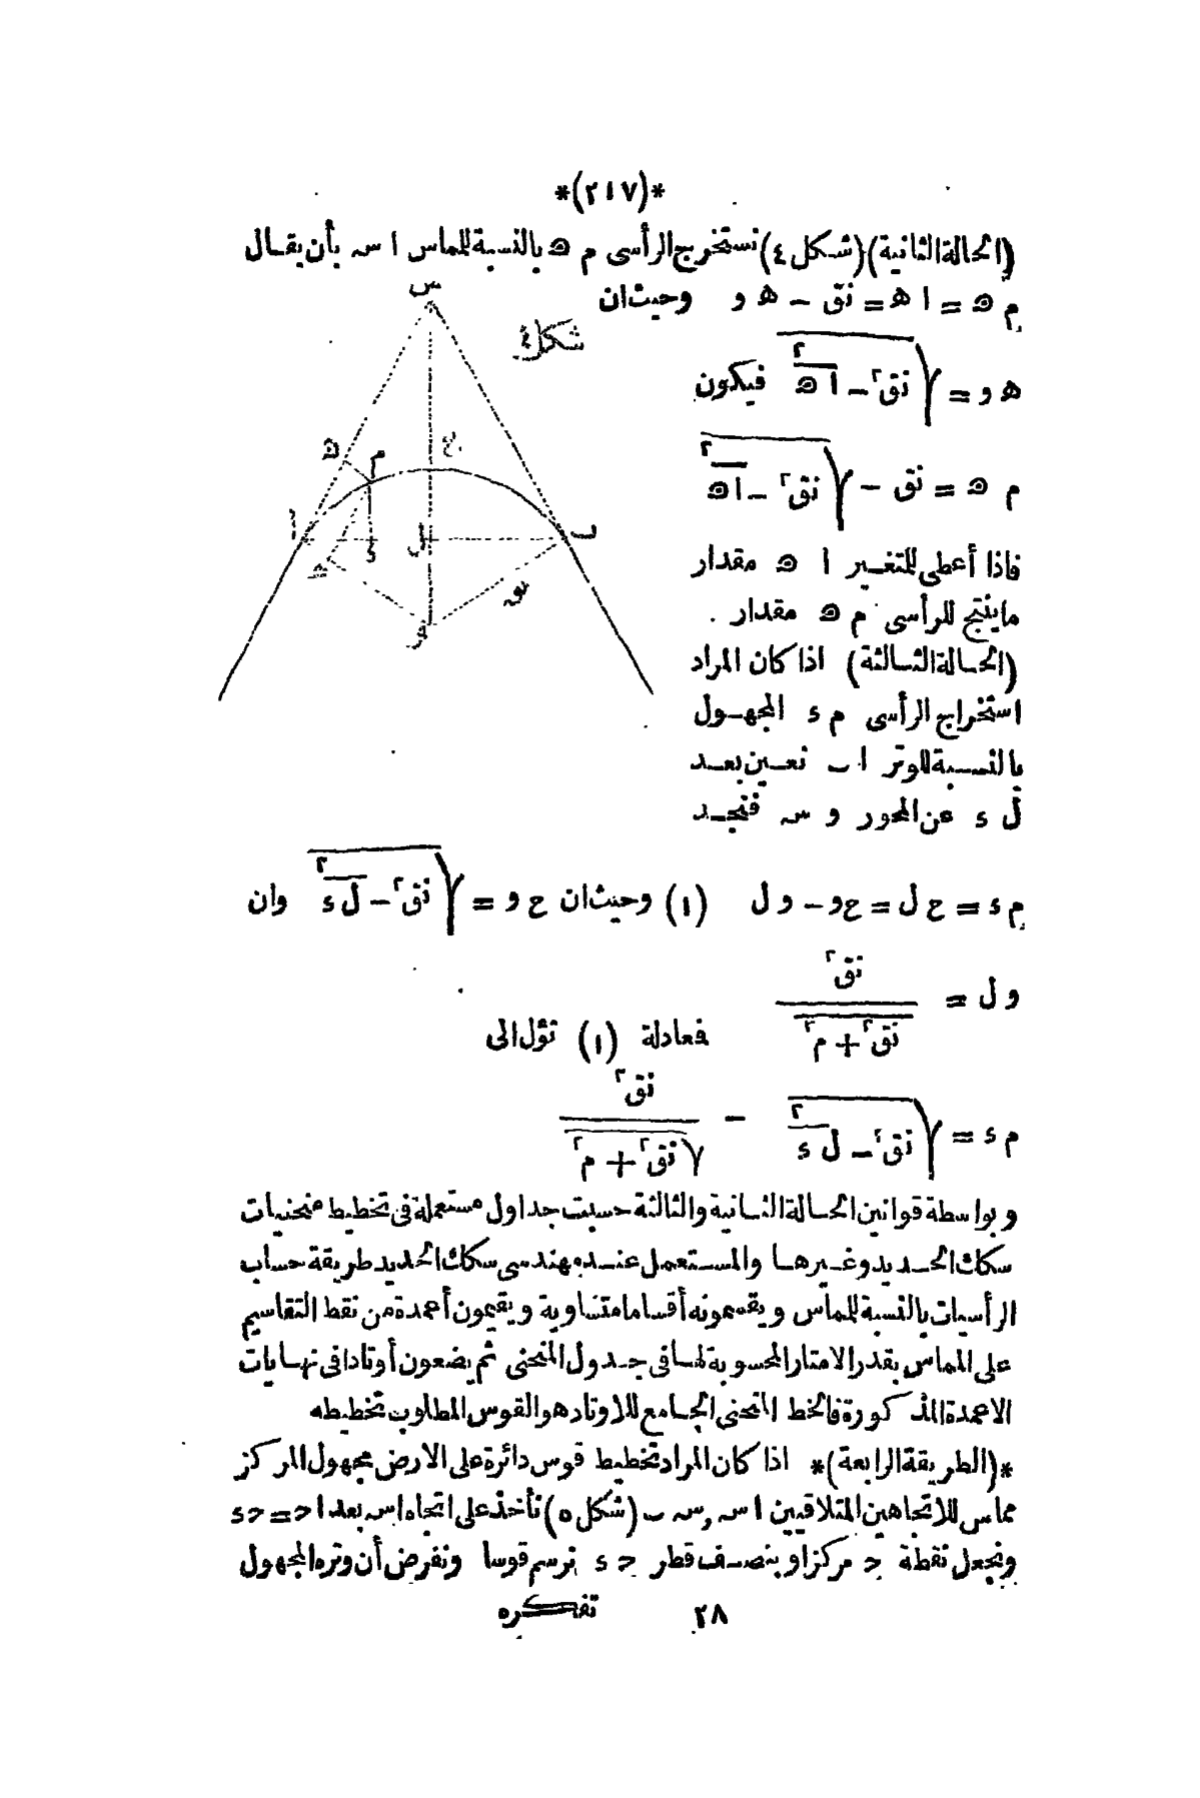 *(٢١٧)*
(الحالة الثانية)(شكل ٤) نستخرج الرأسى م ھ بالنسبة للماس ا س بأن يقال
م ھ = ا ه = نق – ه و وحيث ان
ه و = √ نق٢ – ا ھ٢ فيكون
م ھ = نق – √ نق٢ – ا ھ٢
فاذا أعطى للتغير ا ھ مقدار
ما ينتج للرأسى م ھ مقدار .
(الحالة الثالثة) اذا كان المراد
استخراج الرأسى م ء المجهول
بالنسبة للوتر ا ب نعين بعد
ل ء عن المحور و س فنجد
س
شكل ٤
ھ م ع
أ ء ل ب
ه نق
و
م ء = ع ل = ع و – و ل (١) وحيث ان ع و = √ نق٢ – ل ء٢ وان
و ل = نق٢ / نق٢ + م٢ فعادلة (١) تؤل الى
م ء = √ نق٢ – ل ء٢ – نق٢ / √ نق٢ + م٢
وبواسطة قوانين الحالة الثانية والثالثة حسبت جداول مستعملة فى تخطيط منحنيات
سكك الحديد وغيرها والمستعمل عند مهندسى سكك الحديد طريقة حساب
الرأسيات بالنسبة للماس ويقسمونه أقساما متساوية ويقيمون أعمدة من نقط التقاسيم
على المماس بقدر الامتار المحسوبة لها فى جدول المنحنى ثم يضعون أوتادا فى نهايات
الاعمدة المذكورة فالخط المنحنى الجامع للاوتاد هو القوس المطلوب تخطيطه
*(الطريقة الرابعة)* اذا كان المراد تخطيط قوس دائرة على الارض مجهول المركز
مماس للاتجاهين المتلاقيين ا س , س ب (شكل ٥) نأخذ على اتجاه ا س بعد ا ح = ح ء
ونجعل نقطة ح مركزا وبنصف قطر ح ء نرسم قوسا ونفرض أن وتره المجهول
٢٨ تفكره